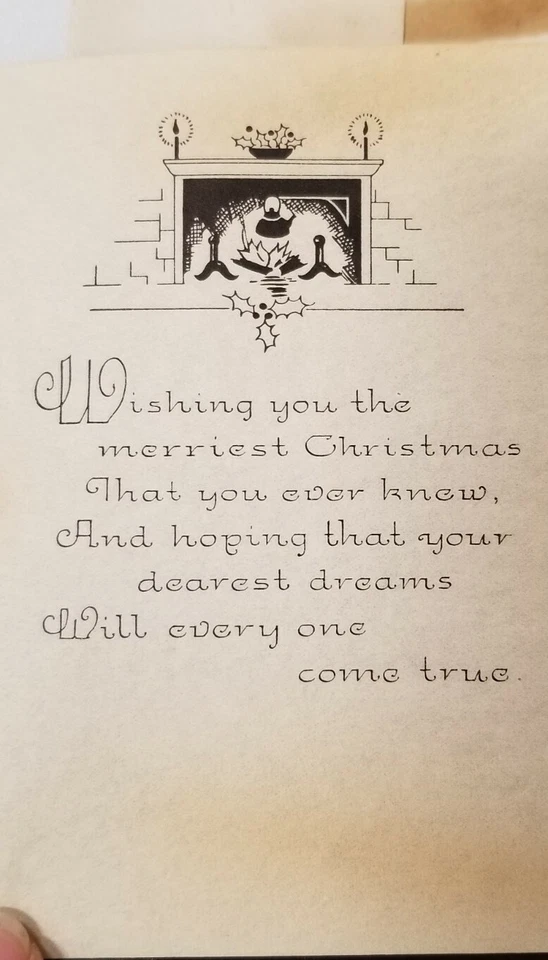 Wishing you the
merriest Christmas
That you ever knew,
And hoping that your
dearest dreams
Will every one
come true.